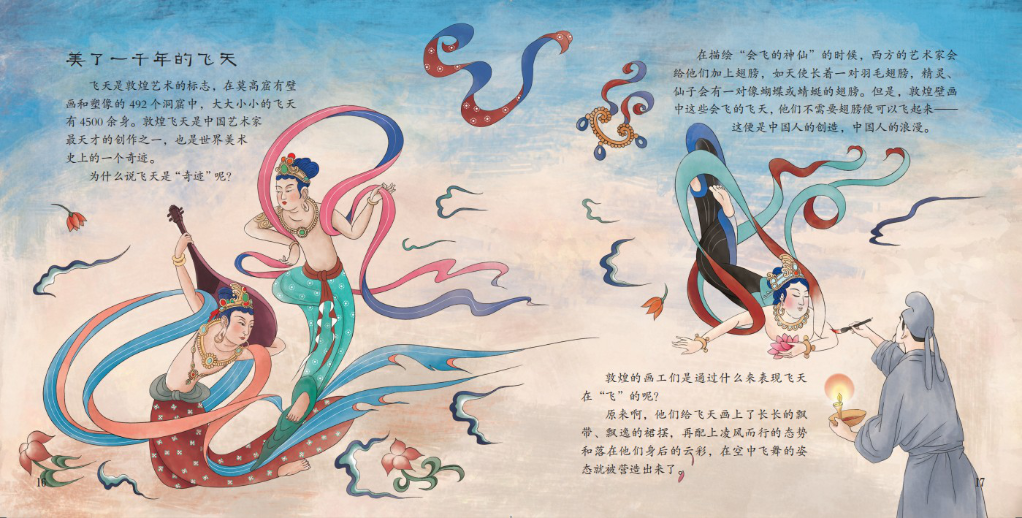 美了一千年的飞天
飞天是敦煌艺术的标志，在莫高窟有壁
画和塑像的 492 个洞窟中，大大小小的飞天
有 4500 余身。敦煌飞天是中国艺术家
最天才的创作之一，也是世界美术
史上的一个奇迹。
为什么说飞天是“奇迹”呢？
16
在描绘“会飞的神仙”的时候，西方的艺术家会
给他们加上翅膀，如天使长着一对羽毛翅膀，精灵、
仙子会有一对像蝴蝶或蜻蜓的翅膀。但是，敦煌壁画
中这些会飞的飞天，他们不需要翅膀便可以飞起来——
这便是中国人的创造，中国人的浪漫。
敦煌的画工们是通过什么来表现飞天
在“飞”的呢？
原来啊，他们给飞天画上了长长的飘
带、飘逸的裙摆，再配上凌风而行的态势
和落在他们身后的云彩，在空中飞舞的姿
态就被营造出来了。
17